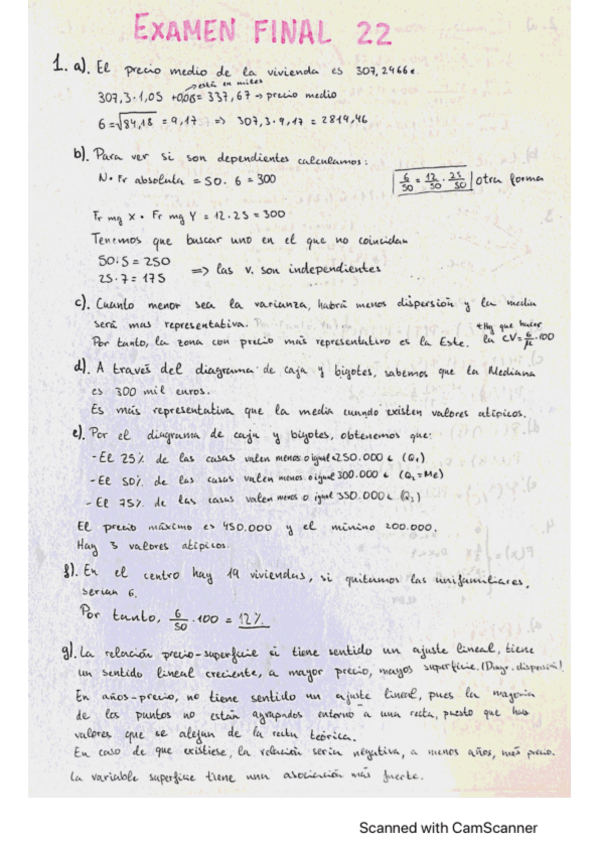 EXAMEN FINAL 22
1. a). El precio medio de la vivienda es 307,2466€
está en miles
307,3 · 1,05 + 0,06 = 337,67 → precio medio
6 = √84,18 = 9,17 => 307,3 · 9,17 = 2819,46
b). Para ver si son dependientes calculamos:
N · Fr absoluta = 50 · 6 = 300
6/50 = 12/50 · 25/50 otra forma
Fr mg X · Fr mg Y = 12 · 25 = 300
Tenemos que buscar uno en el que no coincidan
50 · 5 = 250
25 · 7 = 175 => las v. son independientes
c). Cuanto menor sea la varianza, habrá menos dispersión y la media
será mas representativa.
*Hay que hacer
Por tanto, la zona con precio más representativo es la Este. la CV = 6/μ · 100
d). A través del diagrama de caja y bigotes, sabemos que la Mediana
es 300 mil euros.
Es más representativa que la media cuando existen valores atípicos.
e). Por el diagrama de caja y bigotes, obtenemos que:
- El 25% de las casas valen menos o igual a 250.000 € (Q1)
- El 50% de las casas valen menos o igual 300.000 € (Q2 = Me)
- El 75% de las casas valen menos o igual 350.000 € (Q3)
El precio máximo es 450.000 y el mínimo 200.000.
Hay 3 valores atípicos.
f). En el centro hay 19 viviendas, si quitamos las unifamiliares,
serían 6.
Por tanto, 6/50 · 100 = 12%
g). La relación precio-superficie si tiene sentido un ajuste lineal, tiene
un sentido lineal creciente, a mayor precio, mayos superficie. (Diag. dispersión)
En años-precio, no tiene sentido un ajuste lineal, pues la mayoría
de los puntos no están agrupados entorno a una recta, puesto que hay
valores que se alejan de la recta teórica.
En caso de que existiese, la relación sería negativa, a menos años, más precio.
La variable superficie tiene una asociación más fuerte.
Scanned with CamScanner